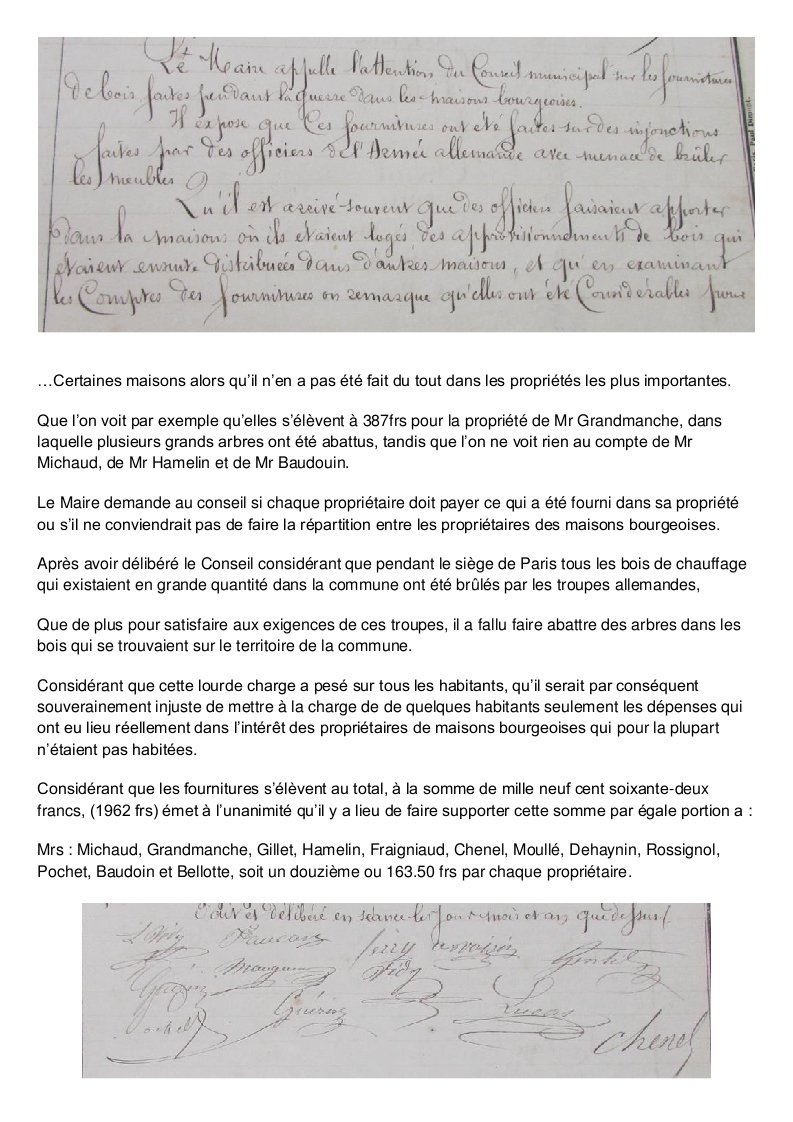 Le Maire appelle l'attention du Conseil municipal sur les fournitures
de bois faites pendant la guerre dans les maisons bourgeoises.
Il expose que Ces fournitures ont été faites sur des injonctions
faites par des officiers de l'Armée allemande avec menace de brûler
les meubles
Qu'il est arrivé souvent que des officiers faisaient apporter
dans la maison où ils étaient logés des approvisionnements de bois qui
étaient ensuite distribués dans d'autres maisons, et qu'en examinant
les Comptes des fournitures on remarque qu'elles ont été Considérables pour
…Certaines maisons alors qu’il n’en a pas été fait du tout dans les propriétés les plus importantes.
Que l’on voit par exemple qu’elles s’élèvent à 387frs pour la propriété de Mr Grandmanche, dans
laquelle plusieurs grands arbres ont été abattus, tandis que l’on ne voit rien au compte de Mr
Michaud, de Mr Hamelin et de Mr Baudouin.
Le Maire demande au conseil si chaque propriétaire doit payer ce qui a été fourni dans sa propriété
ou s’il ne conviendrait pas de faire la répartition entre les propriétaires des maisons bourgeoises.
Après avoir délibéré le Conseil considérant que pendant le siège de Paris tous les bois de chauffage
qui existaient en grande quantité dans la commune ont été brûlés par les troupes allemandes,
Que de plus pour satisfaire aux exigences de ces troupes, il a fallu faire abattre des arbres dans les
bois qui se trouvaient sur le territoire de la commune.
Considérant que cette lourde charge a pesé sur tous les habitants, qu’il serait par conséquent
souverainement injuste de mettre à la charge de de quelques habitants seulement les dépenses qui
ont eu lieu réellement dans l’intérêt des propriétaires de maisons bourgeoises qui pour la plupart
n’étaient pas habitées.
Considérant que les fournitures s’élèvent au total, à la somme de mille neuf cent soixante-deux
francs, (1962 frs) émet à l’unanimité qu’il y a lieu de faire supporter cette somme par égale portion a :
Mrs : Michaud, Grandmanche, Gillet, Hamelin, Fraigniaud, Chenel, Moullé, Dehaynin, Rossignol,
Pochet, Baudoin et Bellotte, soit un douzième ou 163.50 frs par chaque propriétaire.
Fait et délibéré en séance les jour mois et an que dessus
Gentil
Mangin
Guérin
Lucas
Pochet
Chenel